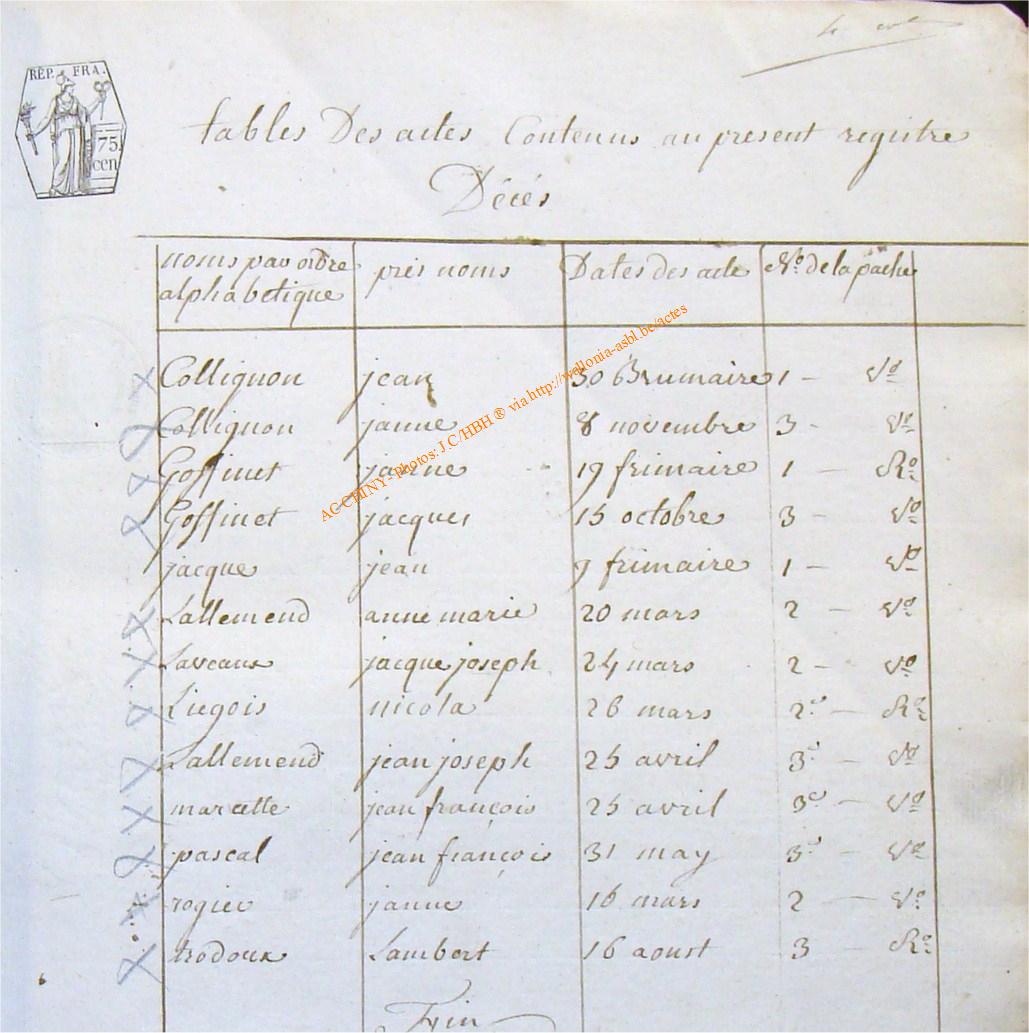 RÉP. FRA.
75.
cen
tables Des actes Contenus au present registre
Décés
noms par ordre alphabetique près noms Dates des acte No. de la pache
Collignon jean 30 Brumaire 1 - Vo
Collignon janne 8 novembre 3 - Vo
Goffinet janne 19 frimaire 1 - Ro
Goffinet jacques 15 octobre 3 - Vo
jacque jean 9 frimaire 1 - Vo
Lallemend anne marie 20 mars 2 - Vo
Laveaux jacque joseph 24 mars 2 - Vo
Liegois nicola 26 mars 2 - Ro
Lallemend jean joseph 25 avril 3 - Vo
marcette jean françois 25 avril 3 - Vo
pascal jean françois 31 may 3 - Vo
rogier janne 16 mars 2 - Vo
trodoux Lambert 16 aoust 3 - Ro
Fin
AC-CHINY- Photos: J.C/HBH ® via http://wallonia-asbl.be/actes